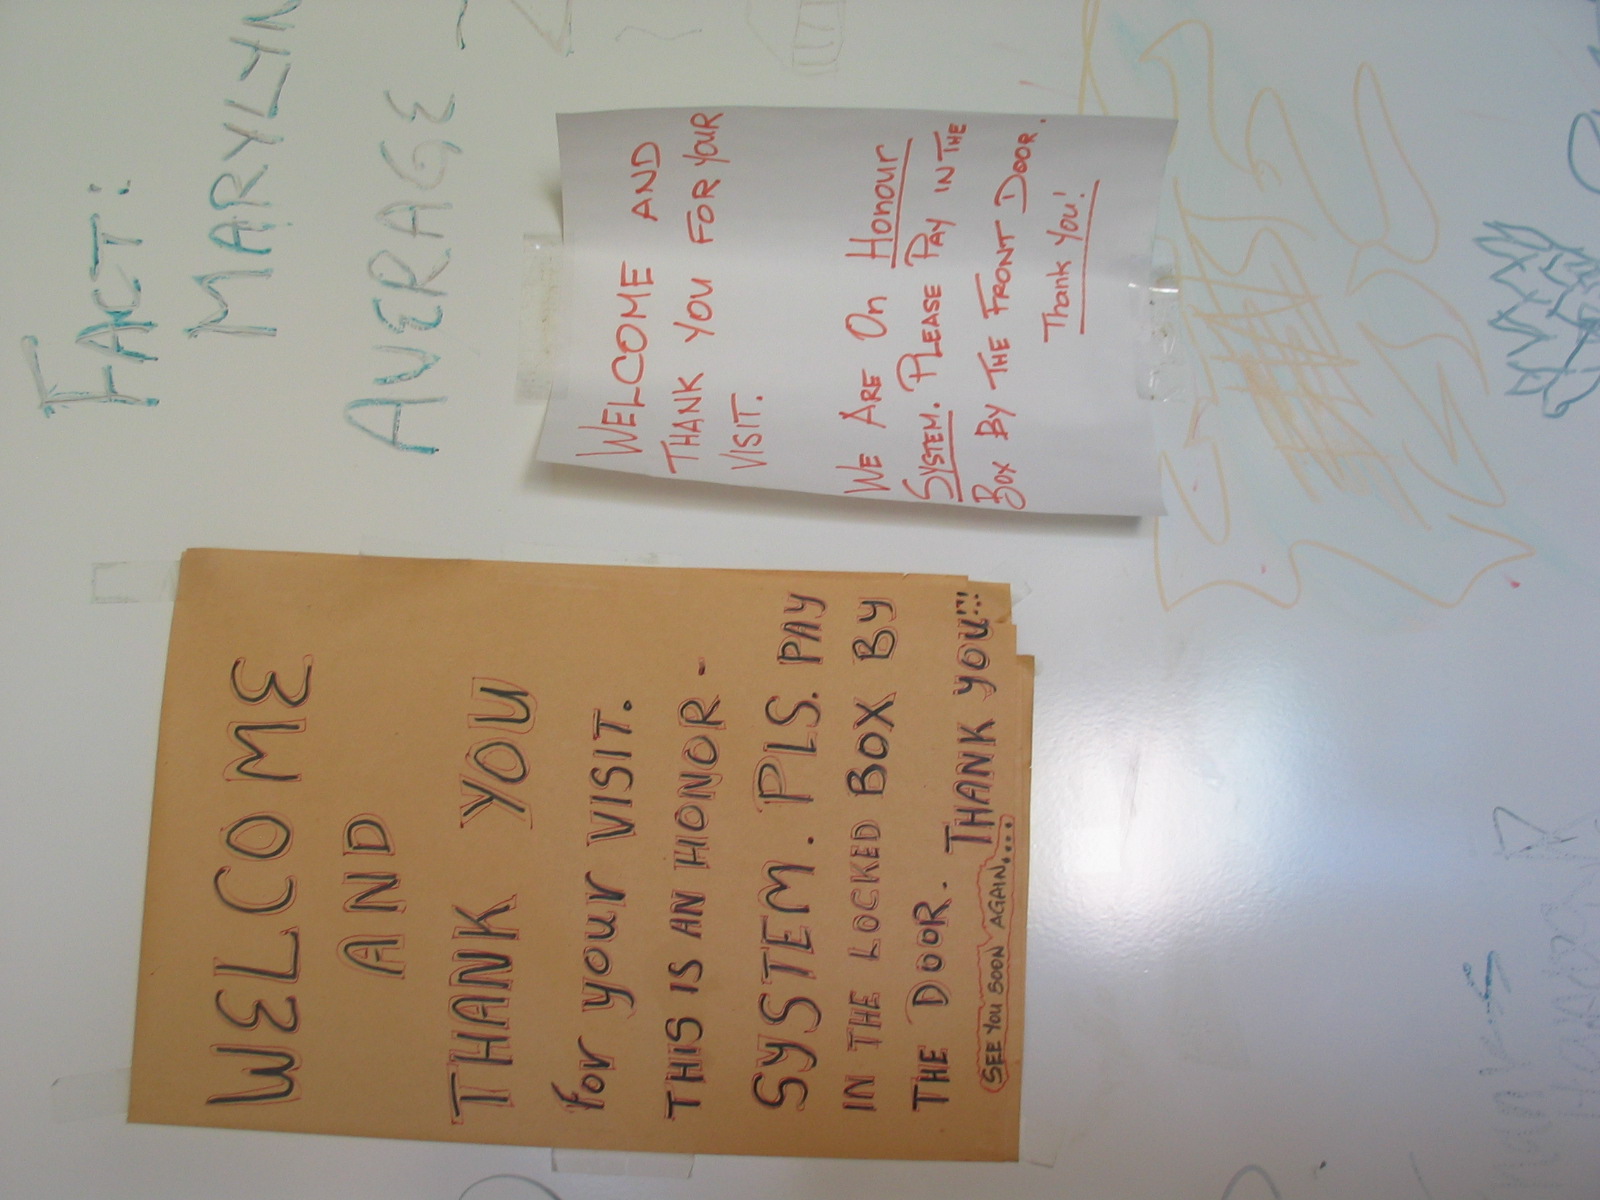 FACT:
MARYLYN
AVERAGE -
WELCOME
AND
THANK YOU
for your VISIT.
THIS IS AN HONOR -
SYSTEM. PLS. PAY
IN THE LOCKED BOX BY
THE DOOR. THANK YOU!!!
SEE YOU SOON AGAIN....
WELCOME AND
THANK YOU FOR YOUR
VISIT.
WE ARE ON HONOUR
SYSTEM. PLEASE PAY IN THE
BOX BY THE FRONT DOOR.
Thank You!